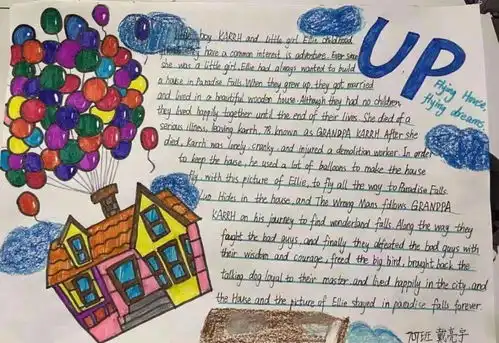 UP
Flying House,
flying dreams.
little boy KARRH and little girl Ellie childhood
have a common interest is adventure. Ever since
she was a little girl, Ellie had always wanted to build
a house in Paradise Falls. When they grew up, they got married
and lived in a beautiful wooden house. Although they had no children,
they lived happily together until the end of their lives. She died of a
serious illness, leaving karrh, 78, known as GRANDPA KARRH. After she
died, Karrh was lonely, cranky, and injured a demolition worker. In order
to keep the house, he used a lot of balloons to make the house
fly with this picture of Ellie, to fly all the way to Paradise Falls
Hides in the house, and The Wrong Mans follows GRANDPA
KARRH on his journey to find wonderland falls. Along the way they
fought the bad guys, and finally they defeated the bad guys with
their wisdom and courage, freed the big bird, brought back the
talking dog loyal to their master, and lived happily in the city, and
the House and the picture of Ellie stayed in paradise falls forever.
707班 戴亮宇